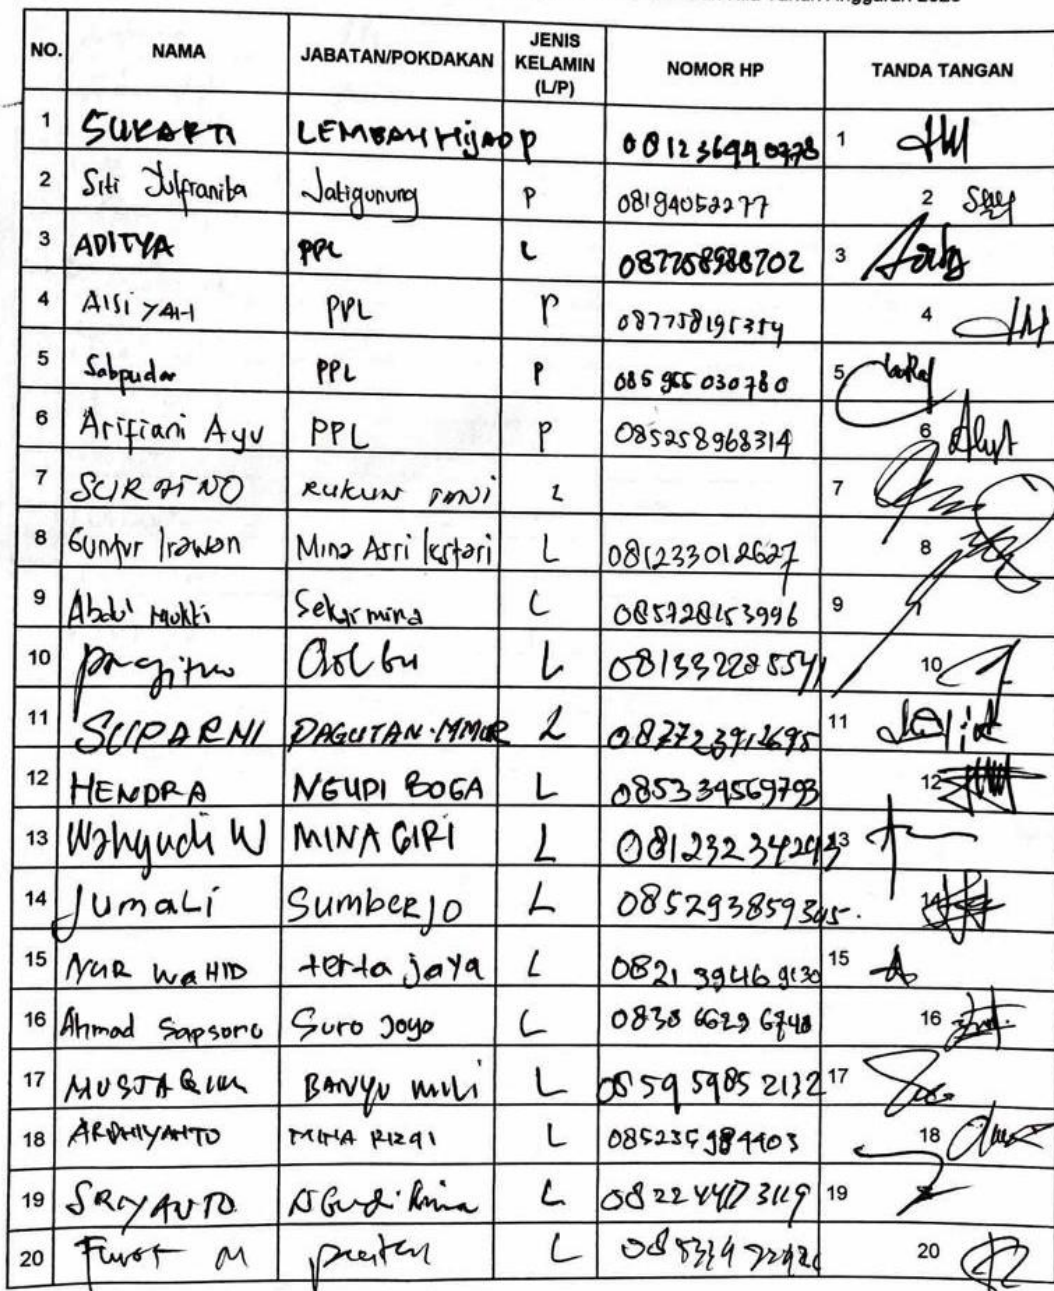 Tahun Anggaran 2025
NO. NAMA JABATAN/POKDAKAN JENIS KELAMIN (L/P) NOMOR HP TANDA TANGAN
1 SUKARTI LEMBAH HIJAO P 1
2 Siti Julfranita Jatigunung P 08194052277 2
3 ADITYA PPL L 087758988702 3
4 AISIYAH PPL P 087758195354 4
5 Sabpudar PPL P 085 965 030780 5
6 Arifiani Ayu PPL P 085258968314 6
7 SURATNO RUKUN TANI L 7
8 Guntur Irawan Mina Asri lestari L 081233012627 8
9 Abdul Mukti Sekar mina L 085728153996 9
10 L 10
11 SUPARNI PAGUTAN L 087723912695 11
12 HENDRA NGUDI BOGA L 085334569793 12
13 Wahyudi W MINA GIRI L 13
14 Jumali Sumberjo L 085293859345 14
15 NUR WAHID tirta jaya L 0821 39469130 15
16 Ahmad Sapsoro Suro Joyo L 0838 6629 6748 16
17 MUSTAQIM BANYU mili L 0859 5985 2132 17
18 ARDHIYANTO MINA RIZQI L 085235984403 18
19 SRIYANTO L 19
20 L 20